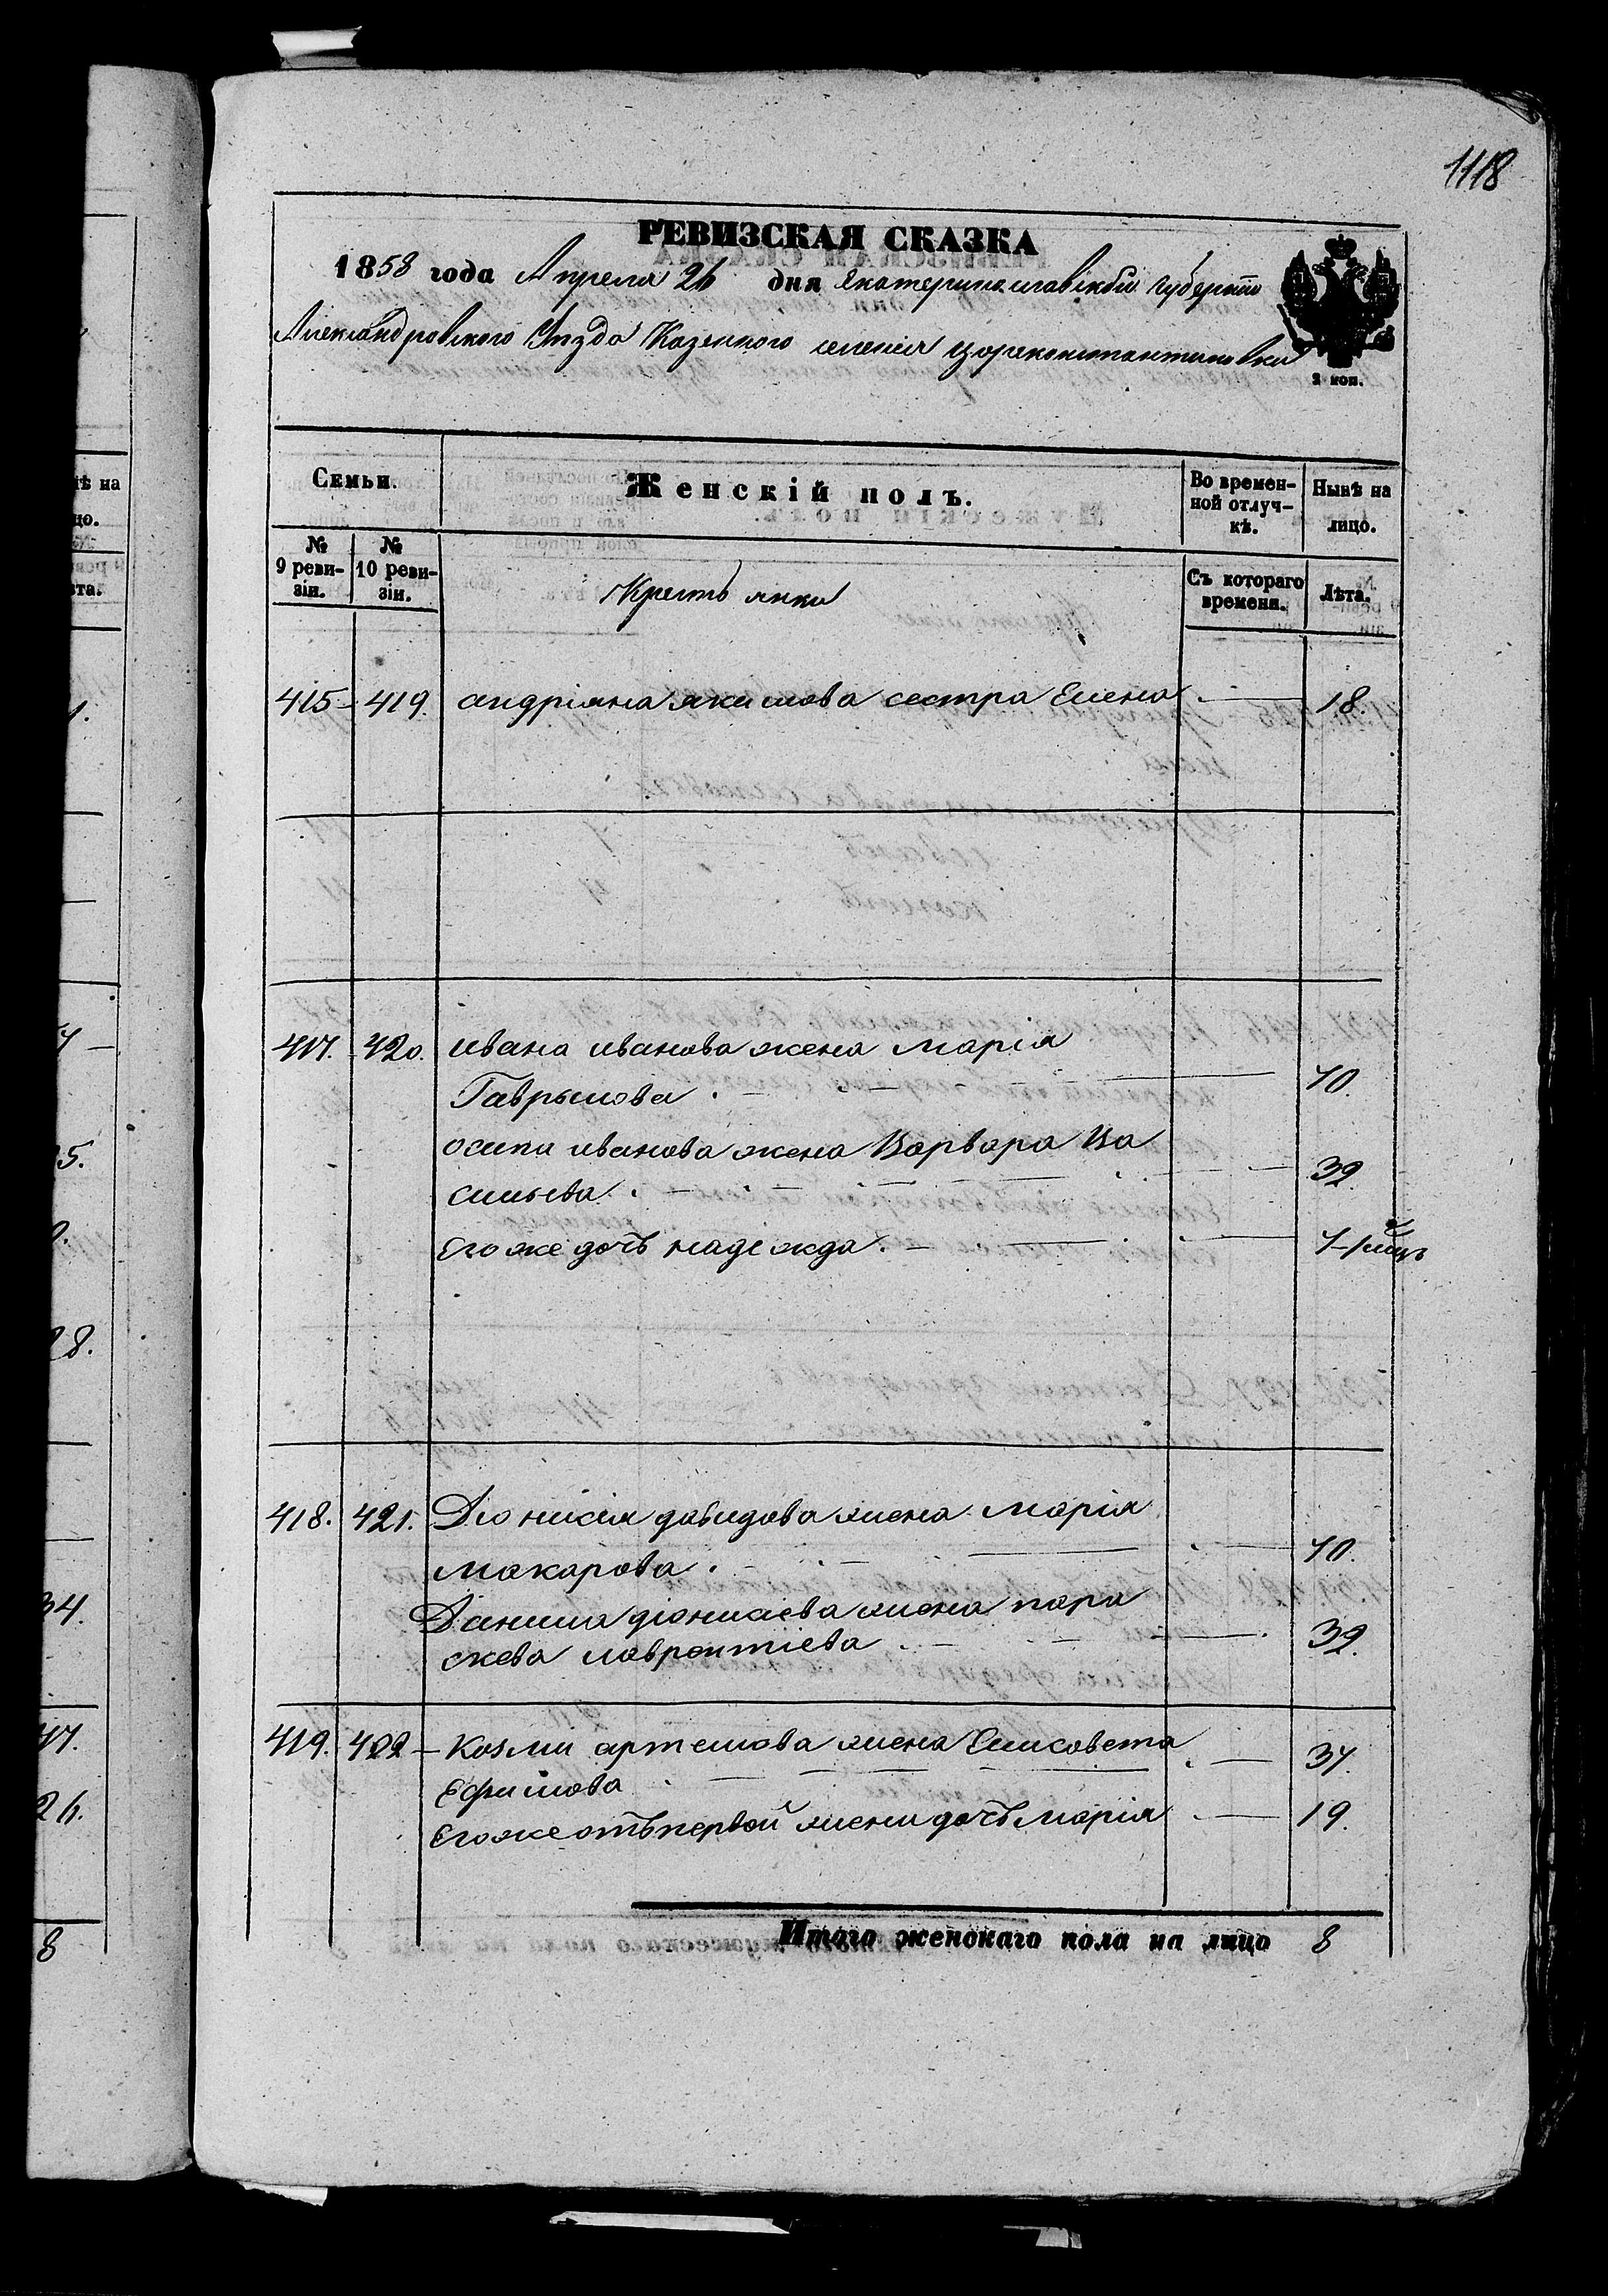 1118
РЕВИЗСКАЯ СКАЗКА
1858 года Апреля 26 дня Екатеринославской Губерніи
Александровского Уѣзда Казенного селенія Цареконстантиновки
2 коп.
Семьи.
Женскій полъ.
Во времен-
ной отлуч-
кѣ.
Нынѣ на
лицо.
№
9 реви-
зіи.
№
10 реви-
зіи.
Крестьянки
Съ котораго
времени.
Лѣта.
415 - 419. андріяна якимова сестра Елена 18.
417. 420. ивана иванова жена Марія
Гаврылова 70.
осипа иванова жена Варвара Ва
сильева 39.
Его же дочь надежда
418. 421. Діонисія давидова жена Марія
Макарова 70.
Данила діонисіева жена пара
скева лаврентіева 39.
419. 422 - Козми артемова жена Елисовета 37.
Ефимова
Его же отъ первой жени дочь Марія 19.
Итого женскаго пола на лицо 8